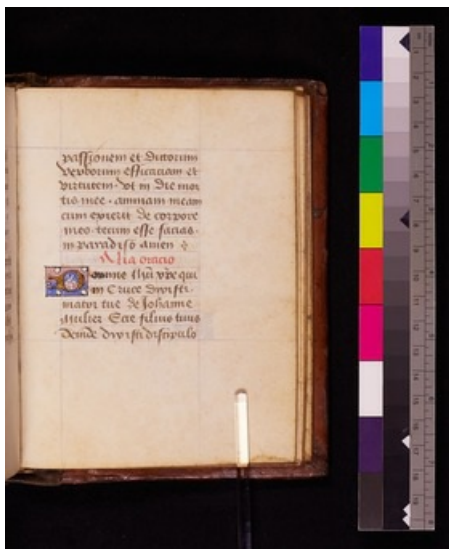 passionem et dictorum
verborum efficaciam et
virtutem. vt in die mor
tis mee. animam meam
cum exierit de corpore
meo. tecum esse facias.
in paradiso amen
Alia oracio
Domine ihu xpe qui
in cruce dixisti.
matri tue de Johanne
Mulier Ecce filius tuus
Deinde dixisti discipulo